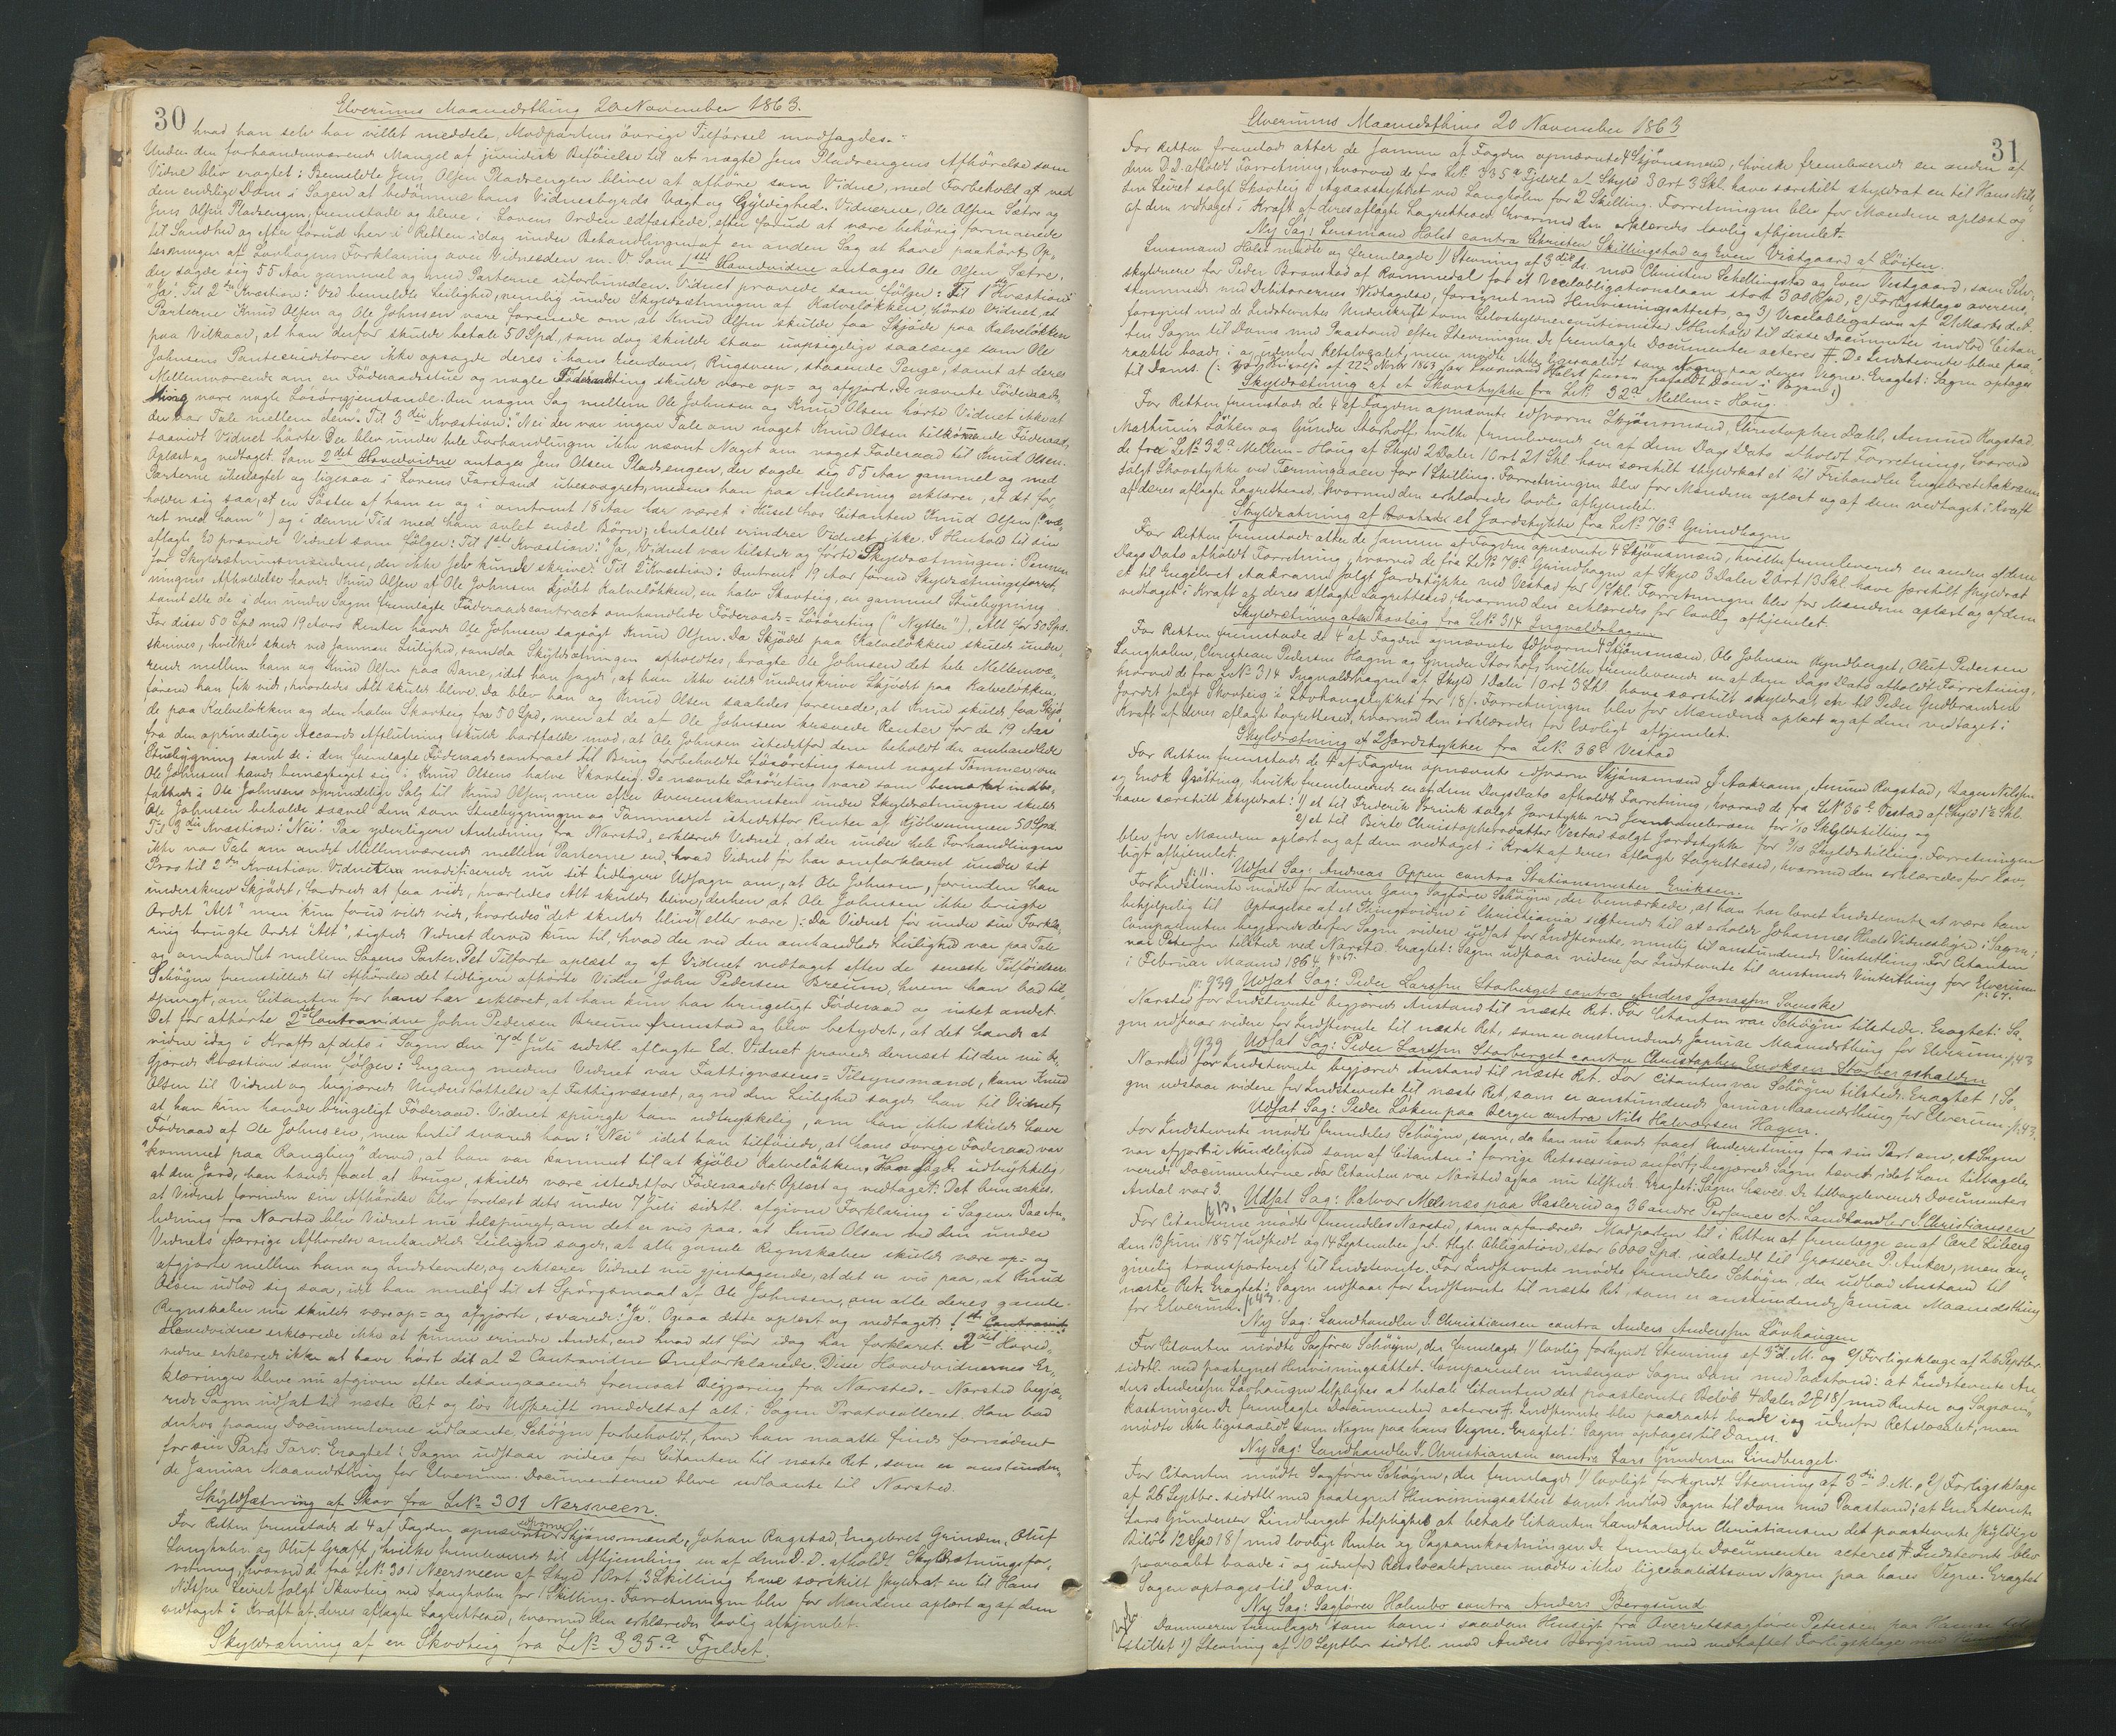 30
Elverums Maanedsthing 20 November 1863.
hvad han selv har villet meddele. Modpartens övrige Tilförsel modsagdes.
Under den forhaandenværende Mangel af juridisk Beföielse til at nægte Jens Pladsengens Afhörelse som
Vidne blev eragtet: Bemeldte Jens Olsen Pladsengen bliver at afhöre som Vidne, med Forbehold af ved
den endelige Dom i Sagen at bedömme hans Vidnesbyrds Vægt og Gyldighed. Vidnerne, Ole Olsen Sætre og
Jens Olsen Pladsengen, fremstode og bleve i Lovens Orden edfæstede, efter forud at være behörig formanede
til Sandhed og efter forud her i Retten idag under Behandlingen af en anden Sag at have paahört Op-
læsningen af Lovbogens Forklaring over Vidneseden m. V. Som 1ste Hovedvidne antages Ole Olsen Sætre,
der sagde sig 55 Aar gammel og med Parterne uforbunden. Vidnet provede som fölger: Til 1ste Kvæstion:
"Ja". Til 2den Kvæstion: Ved bemeldte Leilighed, nemlig under Skyldsætningen af Kalvelökken, hörte Vidnet, at
Parterne Knud Olsen og Ole Johnsen vare forenede om, at Knud Olsen skulde faa Skjöde paa Kalvelökken
paa Vilkaar, at han derfor skulde betale 50 Spd, som dog skulde staa uopsigelige saalænge som Ole
Johnsens Pantecreditorer ikke opsagde deres i hans Eiendom, Rugsveen, staaende Penge, samt at deres
Mellemværende om en Föderaadsstue og nogle Föderaadsting skulde være op- og afgjort. De nævnte Föderaads-
ting vare nogle Lösöregjenstande. Om nogen Sag mellem Ole Johnsen og Knud Olsen hörte Vidnet ikke at
der var Tale mellem dem. Til 3die Kvæstion: "Nei der var ingen Tale om noget Knud Olsen tilkommende Föderaad,
saavidt Vidnet hörte. Der blev under hele Forhandlingen ikke nævnt Noget om noget Föderaad til Knud Olsen.
Oplæst og vedtaget. Som 2det Hovedvidne antages Jens Olsen Pladsengen, der sagde sig 55 Aar gammel og med
Parterne ubeslægtet og ligesaa i Lovens Forstand ubesvogret, medens han paa Anledning erklærer, at det for-
holder sig saa, at en Söster af ham er og i omtrent 18 Aar har været i Huset hos Citanten Knud Olsen ("væ-
ret med ham") og i denne Tid med ham avlet endeel Börn; Antallet erindrer Vidnet ikke. I Henhold til sin
aflagte Ed provede Vidnet som fölger: Til 1ste Kvæstion: "Ja, Vidnet var tilstede og förte Skyldsætningen i Pennen
for Skyldsætningsmændene, der ikke selv kunde skrive." Til 2den Kvæstion: Omtrent 19 Aar förend Skyldsætningsforret-
ningens Afholdelse havde Knud Olsen af Ole Johnsen kjöbt Kalvelökken, en halv Skovteig, en gammel Stuebygning
samt alle de i den under Sagen fremlagte Föderaadscontract omhandlede Föderaads-Lösöreting ("Nytter"), Alt for 50 Spd.
For disse 50 Spd med 19 Aars Renter havde Ole Johnsen sagsögt Knud Olsen. Da Skjödet paa Kalvelökken skulde under-
skrives, hvilket skede ved samme Leilighed, som da Skyldsætningen afholdtes, bragte Ole Johnsen det hele Mellemvæ-
rende mellem ham og Knud Olsen paa Bane, idet han sagde, at han ikke vilde underskrive Skjödet paa Kalvelökken,
förend han fik vide, hvorledes Alt skulde blive. Da blev han og Knud Olsen saaledes forenede, at Knud skulde faa Skjö-
de paa Kalvelökken og den halve Skovteig for 50 Spd, men at de af Ole Johnsen krævede Renter for de 19 Aar
fra den oprindelige Accords Afslutning skulde bortfalde mod, at Ole Johnsen istedetfor dem beholdt den omhandlede
Stuebygning samt de i den fremlagte Föderaadscontract til Brug forbeholdte Lösöreting samt noget Tömmer, som
Ole Johnsen havde bemægtiget sig i Knud Olsens halve Skovteig. De nævnte Lösöreting vare som bemærket indbe-
fattede i Ole Johnsens oprindelige Salg til Knud Olsen, men efter Overenskomsten under Skyldsætningen skulde
Ole Johnsen beholde saavel dem som Stuebygningen og Tömmeret istedetfor Renter af Kjöbesummen 50 Spd.
Til 3die Kvæstion: "Nei." Paa yderligere Anledning fra Narsted, erklærede Vidnet, at der under hele Forhandlingen
ikke var Tale om andet Mellemværende mellem Parterne end, hvad Vidnet för har omforklaret under sit
Prov til 2den Kvæstion. Vidnet modificerede nu sit tidligere Udsagn om, at Ole Johnsen, forinden han
underskrev Skjödet, fordrede at faa vide, hvorledes Alt skulde blive, derhen, at Ole Johnsen ikke brugte
Ordet "Alt" men kun forud vilde vide, hvorledes "det skulde blive" (eller være): Da Vidnet för under sin Forkla-
ring brugte Ordet "Alt", sigtede Vidnet derved kun til, hvad der ved den omhandlede Leilighed var paa Tale
og omhandlet mellem Sagens Parter. Det Tilförte oplæst og af Vidnet vedtaget efter de seneste Tilföielser.
Schöyen fremstillede til Afhörelse det tidligere afhörte Vidne John Pedersen Breium, hvem han bad til-
spurgt, om Citanten for ham har erklæret, at han kun har brugeligt Föderaad og intet andet.
Det för afhörte 2det Contravidne John Pedersen Breium fremstod og blev betydet, at det havde at
vidne idag i Kraft af dets i Sagen den 7de Juli sidstl. aflagte Ed. Vidnet provede dernæst til den nu be-
gjærede Kvæstion som fölger: Engang medens Vidnet var Fattigvæsens-Tilsynsmand, kom Knud
Olsen til Vidnet og begjærede Understöttelse af Fattigvæsenet, og ved den Leilighed sagde han til Vidnet,
at han kun havde brugeligt Föderaad. Vidnet spurgte ham udtrykkelig, om han ikke skulde have
Föderaad af Ole Johnsen, men hertil svarede han: "Nei" idet han tilföiede, at hans övrige Föderaad var
"kommet paa Rangling" derved, at han var kommet til at kjöbe Kalvelökken. Han sagde udtrykkelig,
at den Jord, han havde faaet at bruge, skulde være istedetfor Föderaadet. Oplæst og vedtaget. Det bemærkes,
at Vidnet forinden sin Afhörelse blev forelæst dets under 7 Juli sidstl. afgivne Forklaring i Sagen. Paa An-
ledning fra Narsted blev Vidnet nu tilspurgt, om det er vis paa, at Knud Olsen ved den under
Vidnets forrige Afhörelse omhandlede Leilighed sagde, at alle gamle Regnskaber skulde være op- og
afgjorte mellem ham og Indstevnte, og erklærer Vidnet nu gjentagende, at det er vis paa, at Knud
Olsen udlod sig saa, idet han nemlig til et Spörgsmaal af Ole Johnsen, om alle deres gamle
Regnskaber nu skulde være op- og afgjorte, svarede: "Ja". Ogsaa dette oplæst og vedtaget. 1ste Contravid-
Hovedvidne erklærede ikke at kunne erindre Andet, end hvad det för idag har forklaret. 2det Hoved-
vidne erklærede ikke at have hört det af 2 Contravidne Omforklarede. Disse Hovedvidnernes Er-
klæringer bleve nu afgivne efter desangaaende fremsat Begjæring fra Narsted. – Narsted begjæ-
rede Sagen udsat til næste Ret og lös Udskrift meddelt af alt i Sagen Protocolleret. Han bad
derhos paany Documenterne udlaante. Schöyen forbeholdt, hvad han maatte finde fornödent
for sin Parts Tarv. Eragtet: Sagen udstaar videre for Citanten til næste Ret, som er anstunden-
de Januar Maanedsthing for Elverum. Documenterne bleve udlaante til Narsted.
Skyldsætning af Skov fra LNo 301 Nersveen.
For Retten fremstode de 4 af Fogden opnævnte edsvorne Skjönsmænd, Johan Rogstad, Engebret Grinden, Oluf
Langholen og Oluf Graff, hvilke fremleverede til Afhjemling en af dem D. D. afholdt Skyldsætningsfor-
retning, hvorved de fra LNo 301 Neersveen af Skyld 1 Ort 3 Skilling have særskilt skyldsat en til Hans
Nilsen Leiret solgt Skovteig ved Langholen for 1 Skilling. Forretningen blev for Mændene oplæst og af dem
vedtaget i Kraft af deres aflagte Lagrettesed, hvormed den erklæredes lovlig afhjemlet.
Skyldsætning af en Skovteig fra LNo 335a Fjeldet.
31
Elverums Maanedsthing 20 November 1863
For Retten fremstod atter de samme af Fogden opnævnte 4 Skjönsmænd, hvilke fremleverede en anden af
dem D. D. afholdt Forretning, hvorved de fra LNo 335a Fjeldet af Skyld 3 Ort 3 Skl. have særskilt skyldsat en til Hans Nils-
sen Leiret solgt Skovteig i Agaasstykket ved Langholen for 2 Skilling. Forretningen blev for Mændene oplæst og
af dem vedtaget i Kraft af deres aflagte Lagrettesed, hvormed den erklæredes lovlig afhjemlet.
Ny Sag: Lensmand Holst contra Christen Skillingstad og Even Vestgaard af Löiten.
Lensmand Holst mödte og fremlagde 1/ Stevning af 3die ds. mod Christen Schellingstad og Even Vestgaard, som Selv-
skyldnere for Peder Branstad af Rommedal for et Vexelobligationslaan stort 300 Spd, 2/ Forligsklage overens-
stemmende med Debitorernes Vedtagelse, forsynet med Henvisningsattest, og 3) Vexelobligation af 21 Marts d. A.
forsynet med de Indstevntes Underskrift som Selvskyldnercautionister. I Henhold til disse Documenter indlod Citan-
ten Sagen til Doms med Paastand efter Stevningen. De fremlagte Documenter acteres #. De Indstevnte bleve paa-
raabte baade i og udenfor Retslocalet, men mödte ikke ligesaalidt som Nogen paa deres Vegne. Eragtet: Sagen optages
til Doms. (: af 22de Novbr 1863 har Lensmand Holst Dom i Sagen:)
Skyldsætning af et Skovstykke fra LNo 32a Mellem-Houg.
For Retten fremstode de 4 af Fogden opnævnte edsvorne Skjönsmænd, Christopher Dahl, Amund Rogstad,
Marthinus Löken og Gunder Storhoff, hvilke fremleverede en af dem Dags Dato afholdt Forretning, hvorved
de fra LNo 32a Mellem-Houg af Skyld 2 Daler 1 Ort 21 Skl have særskilt skyldsat et til Frihandler Engebret Aakrann
solgt Skovstykke ved Terningaaen for 1 Skilling. Forretningen blev for Mændene oplæst og af dem vedtaget i Kraft
af deres aflagte Lagrettesed, hvormed den erklæredes lovlig afhjemlet.
Skyldsætning af et Jordstykke fra LNo 76a Grindhagen
For Retten fremstode atter de samme af Fogden opnævnte 4 Skjönsmænd, hvilke fremleverede en anden af dem
Dags Dato afholdt Forretning, hvorved de fra LNo 76a Grindhagen af Skyld 3 Daler 2 Ort 13 Skl have særskilt skyldsat
et til Engebret Aakrann solgt Jordstykke ved Vestad for 1 Skl. Forretningen blev for Mændene oplæst og af dem
vedtaget i Kraft af deres aflagte Lagrettesed, hvormed den erklæredes for lovlig afhjemlet.
Skyldsætning af en Skovteig fra LNo 314 Ingvaldshagen
For Retten fremstode de 4 af Fogden opnævnte edsvorne Skjönsmænd, Ole Johnsen Kyndberget, Oluf Pedersen
Langholen, Christian Pedersen Hagen og Gunder Storhoff, hvilke fremleverede en af dem Dags Dato afholdt Forretning,
hvorved de fra LNo 314 Ingvaldshagen af Skyld 1 Daler 1 Ort 3 Skl have særskilt skyldsat en til Peder Gudbrandsen
Jordet solgt Skovteig i Lövhaugstykket for 18/. Forretningen blev for Mændene oplæst og af dem vedtaget i
Kraft af deres aflagte Lagrettesed, hvormed den erklæredes for lovligt afhjemlet.
Skyldsætning af 2 Jordstykker fra LNo 36e Vestad
For Retten fremstode de 4 af Fogden opnævnte edsvorne Skjönsmænd, J. Aakrann, Amund Rogstad, Lage Nilssen
og Enok Grötting, hvilke fremleverede en af dem Dags Dato afholdt Forretning, hvorved de fra LNo 36e Vestad af Skyld 1½ Skl.
have særskilt skyldsat: 1/ et til Frederik Brink solgt Jorstykke ved for 1/10 Skyldskilling og
2/ et til Birte Christophersdatter Vestad solgt Jordstykke for 2/10 Skyldskilling. Forretningen
blev for Mændene oplæst og af dem vedtaget i Kraft af deres aflagte Lagrettesed, hvormed den erklæredes for lov-
ligt afhjemlet.
p. 11. Udsat Sag: Andreas Oppen contra Stationsmester Eriksen.
For Indstevnte mödte for denne Gang Sagförer Schöyen, der bemærkede, at han har lovet Indstevnte at være ham
behjelpelig til Optagelse af et Thingsvidne i Christiania sigtende til at erholde Johannes Hoels Vidneudsigen i Sagen;
Comparenten begjærede derfor Sagen videre udsat for Indstevnte, nemlig til anstundende Vinterthing. For Citanten
var Petersen tilstede ved Narsted. Eragtet: Sagen udstaar videre for Indstevnte til anstunds Vinterthing for Elverum
i Februar Maaned 1864. p. 67.
p. 939 Udsat Sag: Peder Larssen Storberget contra Anders Jonassen Svenske
Narsted for Indstevnte begjærede Anstand til næste Ret. For Citanten var Schöyen tilstede. Eragtet: Sa-
gen udstaar videre for Indstevnte til næste Ret, som er anstundende Januar Maanedsthing for Elverum. p. 43
p. 939 Udsat Sag: Peder Larssen Storberget contra Christopher Enoksen Storbergshalden
Narsted for Indstevnte begjærede Anstand til næste Ret. For Citanten var Schöyen tilstede. Eragtet: Sa-
gen udstaar videre for Indstevnte til næste Ret, som er anstundende Januar Maanedsthing for Elverum. p. 43.
Udsat Sag: Peder Löken paa Berger contra Nils Halvorsen Hagen.
For Indstevnte mödte fremdeles Schöyen, som, da han nu havde faaet Underretning fra sin Part om, at Sagen
var afgjort i Mindelighed som af Citanten i forrige Retssession anfört, begjærede Sagen hævet idet han tilbagele-
verede Documenterne. For Citanten var Narsted ogsaa nu tilstede. Eragtet: Sagen hæves. De tilbageleverede Documenters
Antal var 3.
p. 13. Udsat Sag: Halvor Melnæs paa Haslerud og 36 andre Personer ct. Landhandler J. Christiansen
For Citanterne mödte fremdeles Narsted, som opfordrede Modparten til i Retten at fremlægge en af Carl Liberg
den 13 Juni 1857 udstedt og 14 September s. A. thgl. Obligation, stor 6000 Spd. udstedt til Grosserer P. Anker, men an-
givelig transporteret til Indstevnte. For Indstevnte mödte fremdeles Schöyen, der udbad Anstand til
næste Ret. Eragtet: Sagen udstaar for Indstevnte til næste Ret, som er anstundende Januar Maanedsthing
for Elverum. p. 43
Ny Sag: Landhandler J. Christiansen contra Anders Anderssen Lövhaugen
For Citanten mödte Sagförer Schöyen, der fremlagde 1/ lovlig forkyndt Stevning af 3die d. M. og 2/ Forligsklage af 26 Septbr.
sidstl. med paategnet Henvisningsattest. Comparenten undergav Sagen Dom med Paastand: at Indstevnte An-
ders Anderssen Lövhaugen tilpligtes at betale Citanten det paastevnte Belöb 4 Daler 2 # 18/ med Renter og Sagsom-
kostninger. De fremlagte Documenter acteres #. Indstevnte blev paaraabt baade i og udenfor Retslocalet, men
mödte ikke ligesaalidt som Nogen paa hans Vegne. Eragtet: Sagen optages til Doms.
Ny Sag: Landhandler J. Christiansen contra Lars Gundersen Lindberget.
For Citanten mödte Sagförer Schöyen, der fremlagde 1/ lovligt forkyndt Stevning af 3die d. M., 2/ Forligsklage
af 26 Septbr. sidstl med paategnet Henvisningsattest samt indlod Sagen til Dom med Paastand: at Indstevnte
Lars Gundersen Lindberget tilpligtes at betale Citanten Landhandler Christiansen det paastevnte skyldige
Belöb 12 Spd 18/ med lovlige Renter og Sagsomkostninger. De fremlagte Documenter acteres #. Indstevnte blev
paaraabt baade i og udenfor Retslocalet, men mödte ikke ligesaalidt som Nogen paa hans Vegne. Eragtet
Sagen optages til Doms.
Ny Sag: Sagförer Holmbo contra Anders Bergsund
Dommeren fremlagde som ham i saadan Hensigt fra Overretssagförer Petersen paa Hamar til-
stillet 1) Stevning af 10 Septbr sidstl. mod Anders Bergsund med vedhæftet Forligsklage med